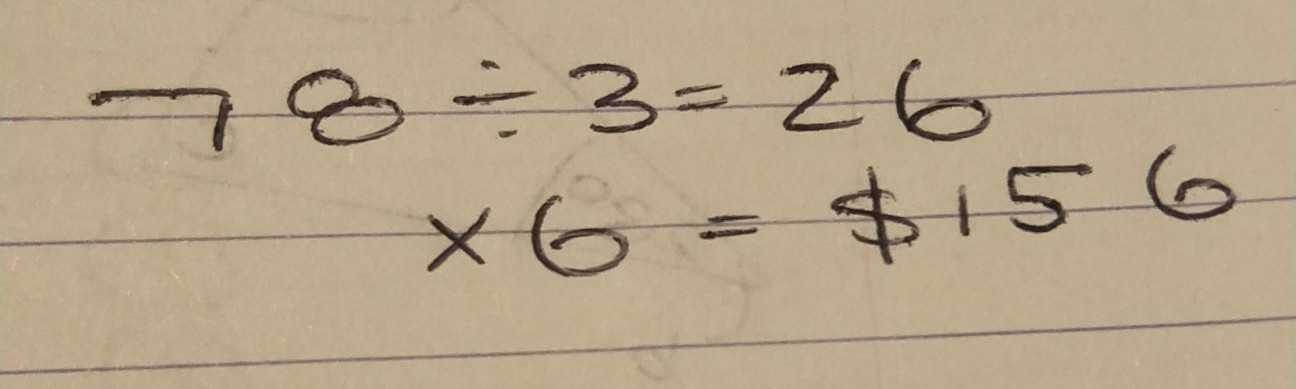 78 ÷ 3 = 26
× 6 = $156